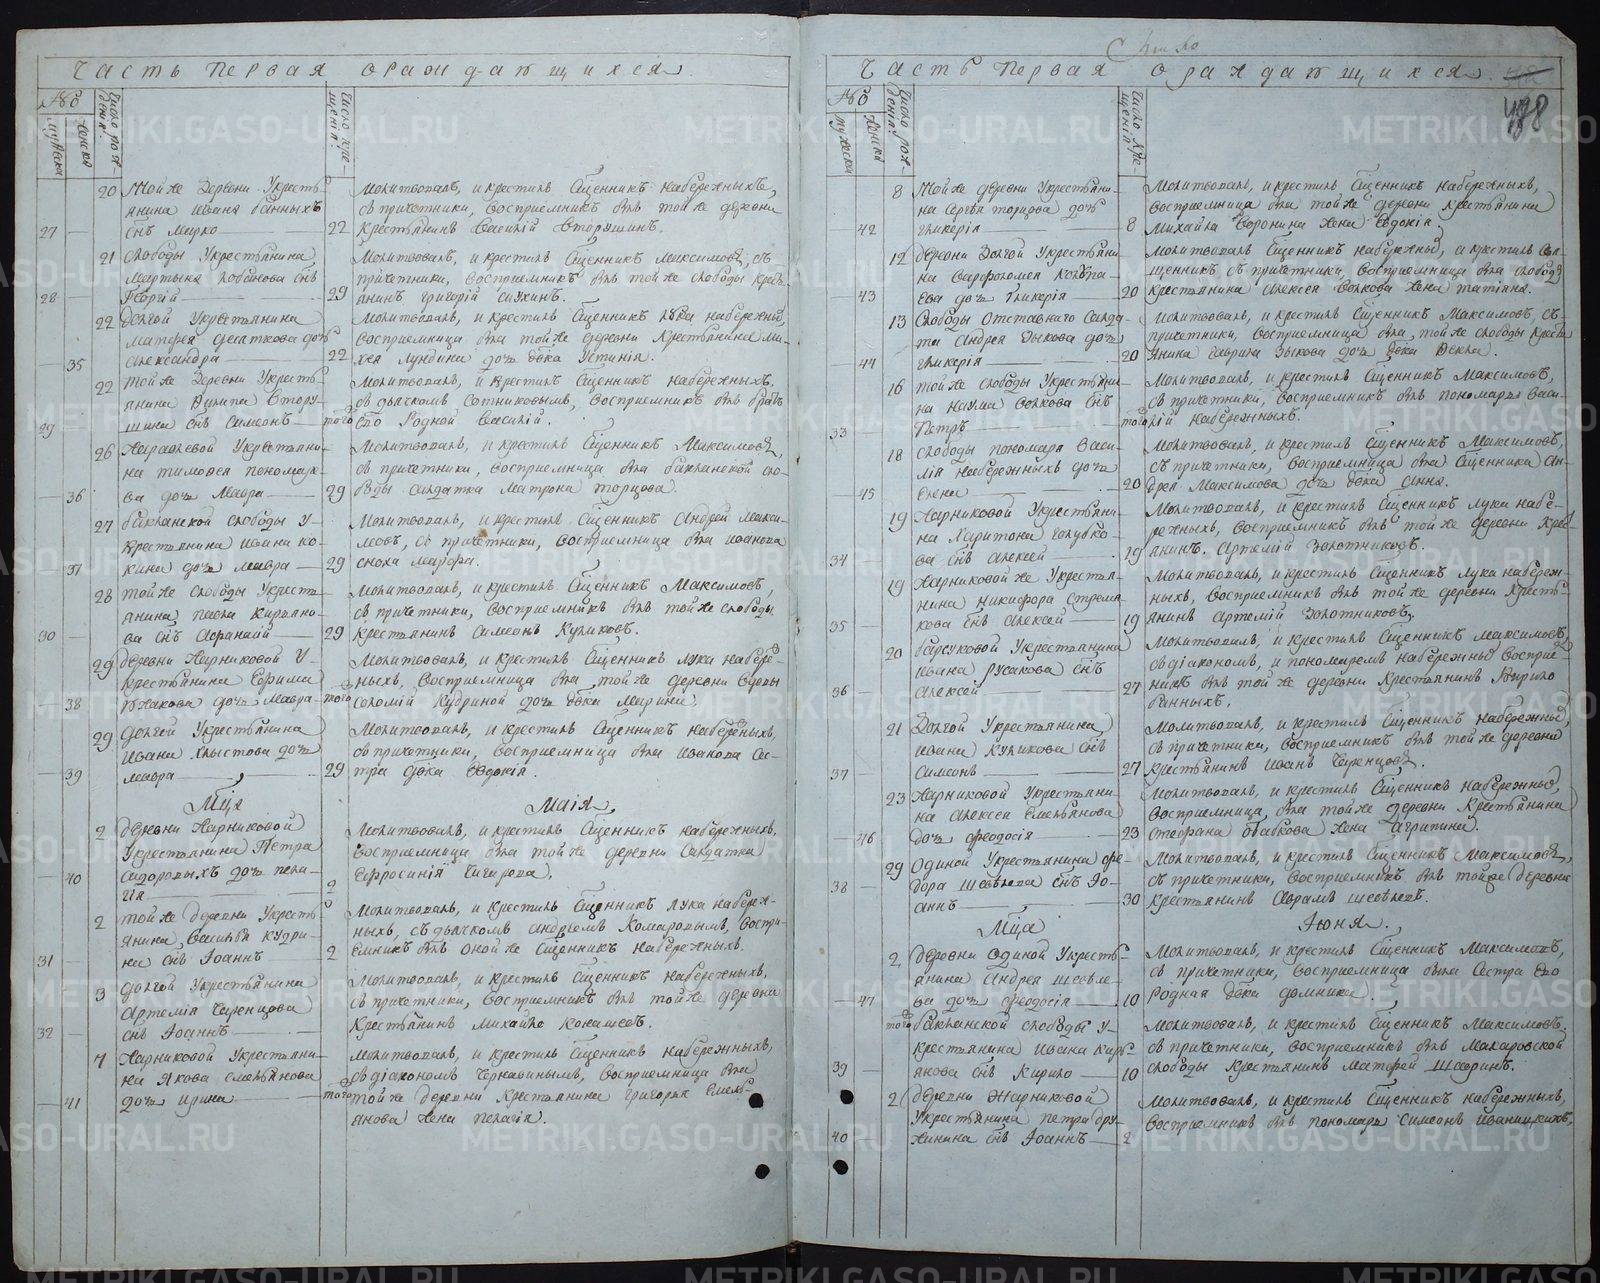 часть первая ораждающихся
№о
мужеска
женска
число рож-
денія.
число кре-
щенія.
20 Той же деревни Укресть-
янина Ивана банныхъ
27 — снъ Марко — 22
Молитвовалъ, и крестилъ Священникъ набережныхъ,
съ причетники, восприемникъ былъ той же деревни
крестьянинъ Василий Вторушинъ.
21 слободы Укрестьянина
Мартына Лобанова снъ
28 — Георгій — 29
Молитвовалъ, и крестилъ Священникъ Максимовъ, съ
причетники, восприемникъ былъ той же слободы крест-
анинъ григорій
22 долгой Укрестьянина
Матфея десяткова дочь
— 35 Александра — 22
Молитвовалъ, и крестилъ Священникъ лука набережныхъ,
восприемница была той же деревни крестьянина ми-
хея лундина дочь девка Устинія.
22 той же деревни Укресть-
янина Филипа втору-
29 шина снъ Симеонъ — того
Молитвовалъ, и крестилъ Священникъ набережныхъ,
съ дьячкомъ Сотниковымъ, восприемникъ былъ братъ
его Родной Василій.
26 Укрестьяни-
на тимофея пономаре-
— 36 ва дочь Мавра — 29
Молитвовалъ, и крестилъ Священникъ Максимовъ,
съ причетники, восприемница была баклановской сло-
боды солдатка Матрона торцова.
27 бакланской слободы у-
крестьянина Ивана ко-
— 37 кина дочь мавра — 29
Молитвовалъ, и крестилъ Священникъ Андрей макси-
мовъ, съ причетники, восприемница была Иванова
сноха Марфа.
28 той же слободы Укресть-
янина павла кирьяно-
30 — ва снъ Афанасій — 29
Молитвовалъ, и крестилъ Священникъ Максимовъ,
съ причетники, восприемникъ былъ той же слободы
крестьянинъ Симеонъ Куликовъ.
29 деревни Жарниковой У-
крестьянина Ефима
— 38 дочь Мавра — того
Молитвовалъ, и крестилъ Священникъ лука набере-
ныхъ, восприемница была той же деревни вдовы
соломіи Кудриной дочь девка Марина.
29 долгой Укрестьянина
Ивана Хлыстова дочь
— 39 мавра — 29
Молитвовалъ, и крестилъ Священникъ набережныхъ,
съ причетники, восприемница была Иванова сес-
тра девка Евдокія.
Мца Маія.
2 деревни Жарниковой
Укрестьянина Петра
— 40 сидоровыхъ дочь пела-
гія — 2
Молитвовалъ, и крестилъ Священникъ набережныхъ,
восприемница была той же деревни солдатка
Ефросинія
2 той же деревни Укресть-
янина Василья кудри-
31 — на снъ Іоаннъ — 2
Молитвовалъ, и крестилъ Священникъ лука набереж-
ныхъ, съ дьячкомъ Андреемъ Комаровымъ, воспри-
емникъ былъ оной же Священникъ набережныхъ.
3 долгой Укрестьянина
Артемія Черенцова
32 — снъ Іоаннъ —
Молитвовалъ, и крестилъ Священникъ набережныхъ,
съ причетники, восприемникъ былъ той же деревни
Крестьянинъ Михайло Конашевъ.
7 Жарниковой Укрестьяни-
на Якова Емельянова
— 41 дочь ирина — того
Молитвовалъ, и крестилъ Священникъ набережныхъ,
съ діакономъ Чернавинымъ, восприемница была
той же деревни Крестьянина григорья Емель-
янова жена пелагія.
часть первая ораждающихся
498
№о
мужеска
женска
число рож-
денія.
число кре-
щенія.
8 той же деревни Укрестьяни-
на Сергея торцова дочь
— 42 гликерія — 8
Молитвовалъ, и крестилъ Священникъ набережныхъ,
восприемница была той же деревни крестьянина
михайла Воронина жена Евдокія.
12 деревни Долгой Укрестьяни-
на Варфоломея
— 43 ева дочь Гликерія — 20
Молитвовалъ Священникъ набережныхъ, и крестилъ свя-
щенникъ съ причетники, восприемница была слободы
крестьянина Алексея Волкова жена татіана.
13 Слободы отставнаго Салда-
та Андрея Зыкова дочь
— 44 гликерія — 20
Молитвовалъ, и крестилъ Священникъ Максимовъ, съ
причетники, восприемница была той же слободы кресть-
янина гаврила Зыкова дочь девка Фекла.
16 той же слободы Укрестьяни-
на наума волкова снъ
33 — Петръ — того
Молитвовалъ, и крестилъ Священникъ Максимовъ,
съ причетники, восприемникъ былъ пономарь Васи-
лій набережныхъ.
18 слободы пономаря васи-
лія набережныхъ дочь
— 45 Елена — 20
Молитвовалъ, и крестилъ Священникъ Максимовъ,
съ причетники, восприемница была Священника Ан-
дрея Максимова дочь девка Анна.
19 Жарниковой Укрестьяни-
на Харитона голубко-
34 — ва снъ Алексей — 19
Молитвовалъ, и крестилъ Священникъ лука набе-
режныхъ, восприемникъ былъ той же деревни крест-
янинъ Артемій Золотниковъ.
19 Жарниковой же Укрестья-
нина никифора стрема-
35 — кова снъ Алексей — 19
Молитвовалъ, и крестилъ Священникъ лука набереж-
ныхъ, восприемникъ былъ той же деревни кресть-
янинъ Артемій Золотниковъ.
20 барсуковой Укрестьянина
Ивана Русакова снъ
36 — Алексей — 27
Молитвовалъ, и крестилъ Священникъ максимовъ,
съ діакономъ, и пономаремъ набережныхъ восприем-
никъ былъ той же деревни крестьянинъ Кирило
банныхъ.
21 Долгой Укрестьянина
Ивана Куликова снъ
37 — Симеонъ — 27
Молитвовалъ, и крестилъ Священникъ набережныхъ,
съ причетники, восприемникъ былъ той же деревни
крестьянинъ Иванъ Черенцовъ.
23 Жарниковой Укрестьяни-
на Алексея Емельянова
— 46 дочь феодосія — 23
Молитвовалъ, и крестилъ Священникъ набережныхъ,
восприемница была той же деревни крестьянина
стефана жена Агрипина.
29 Одиной Укрестьянина фе-
38 — дора Шевелева снъ Іо-
аннъ — 30
Молитвовалъ, и крестилъ Священникъ Максимовъ,
съ причетники, восприемникъ былъ той же деревни
крестьянинъ Аврамъ шевелевъ.
Мца Іюня.
2 деревни одиной Укресть-
янина Андрея шевеле-
— 47 ва дочь феодосія — 10
Молитвовалъ, и крестилъ Священникъ Максимовъ,
съ причетники, восприемница была Сестра Его
Родная девка домника.
того бакланской слободы у-
крестьянина Ивана кирь-
39 — янова снъ Кирило — 10
Молитвовалъ, и крестилъ Священникъ Максимовъ,
съ причетники, восприемникъ былъ Макаровской
слободы крестьянинъ Матфей
2 деревни Жарниковой
Укрестьянина петра дру-
40 — жинина снъ Іоаннъ — 2
Молитвовалъ, и крестилъ Священникъ набережныхъ,
восприемникъ былъ пономарь Симеонъ Иваницкихъ.
METRIKI.GASO-URAL.RU